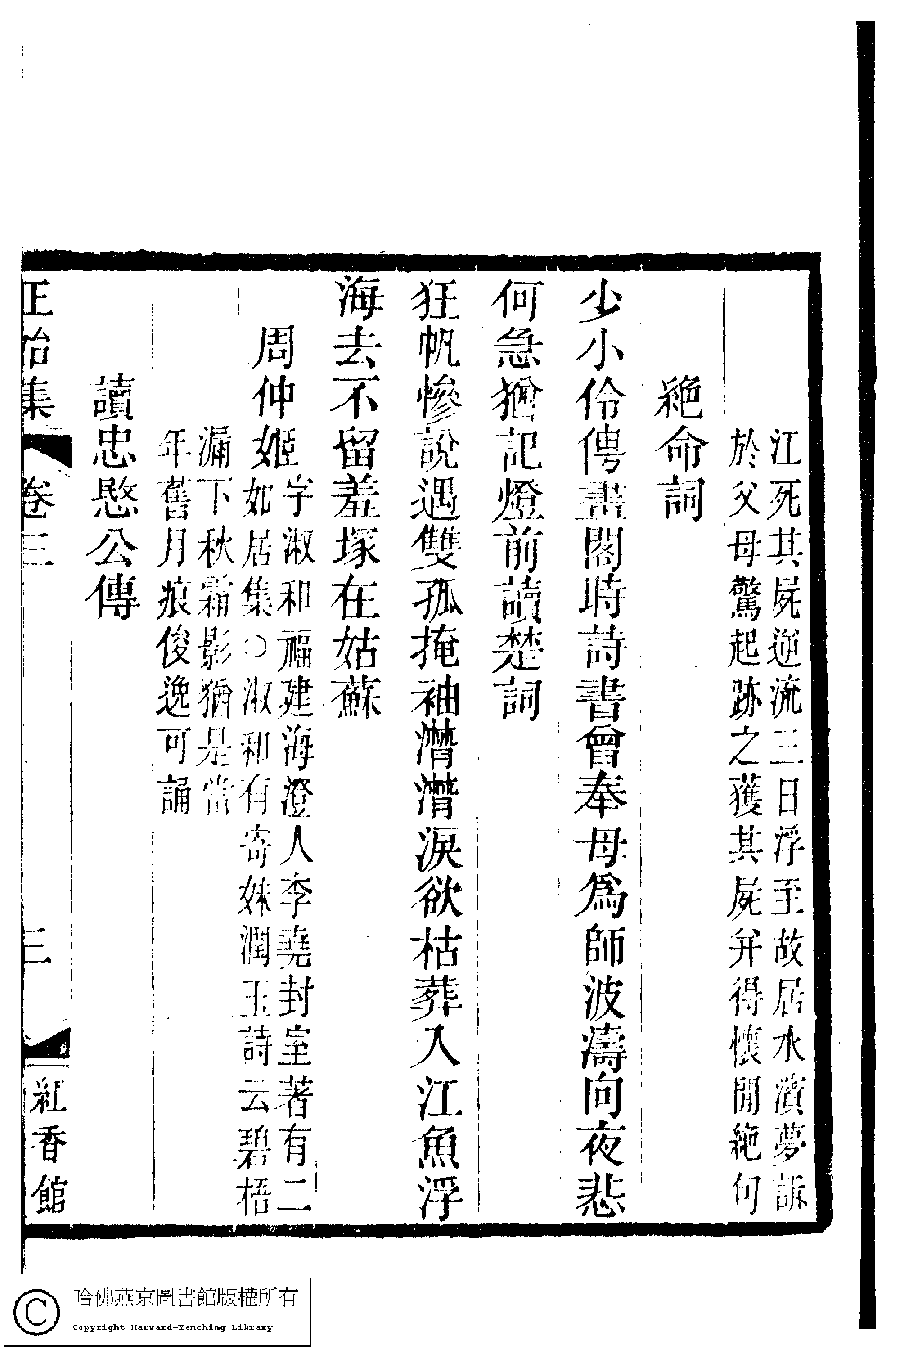 江死其屍逆流三日浮至故居水濱夢訴
於父母驚起跡之獲其屍并得懷間絶句
絶命詞
少小伶俜畫閣時詩書曾奉母爲師波濤向夜悲
何急猶記燈前讀楚詞
狂帆慘說遇雙孤掩袖潸潸淚欲枯葬入江魚浮
海去不留羞塚在姑蘇
周仲姬字淑和福建海澄人李堯封室著有二
如居集○淑和有寄妹潤玉詩云碧梧
漏下秋霜影猶是當
年舊月痕俊逸可誦
讀忠愍公傳
正始集 卷三 三 紅香館
哈佛燕京圖書館版權所有
Copyright Harvard-Yenching Library